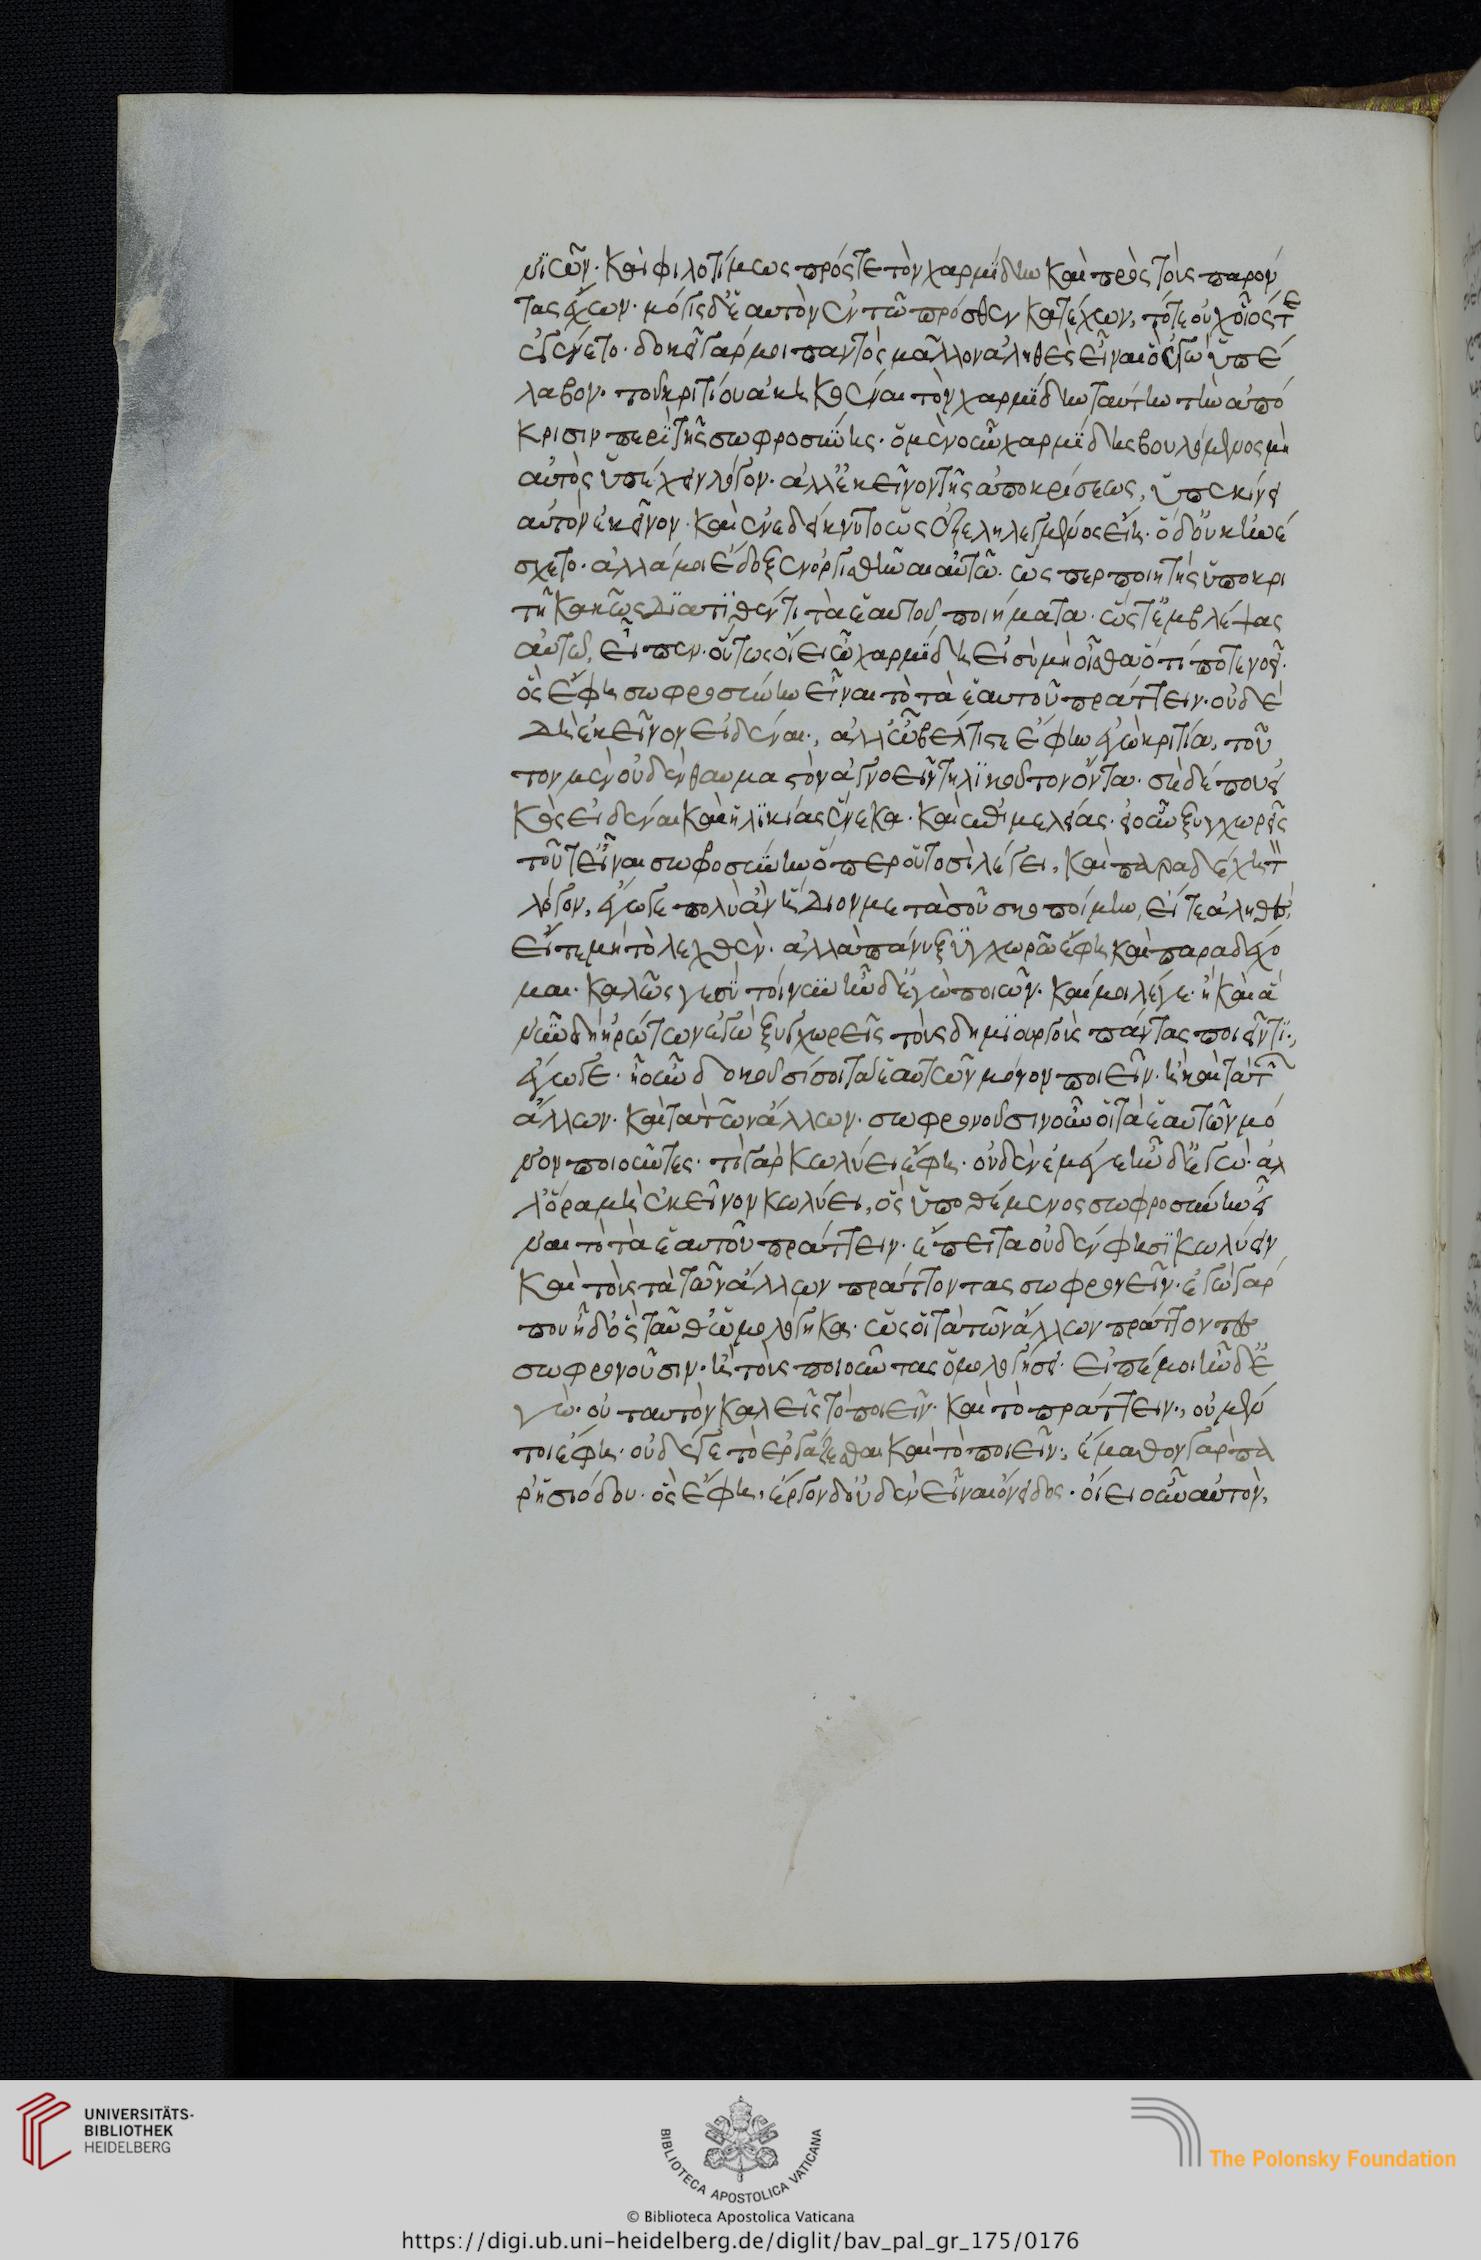 νϊῶν· καὶ φιλοτίμως πρός τε τὸν χαρμίδην καὶ πρὸς τοὺς παρόν
τας ἔχων· μόγις δ' ἑαυτὸν ἐν τῶ πρόσθεν κατέχων, τότε οὐχ οἷός τε
ἐγένετο· δοκεῖ γάρ μοι παντὸς μᾶλλον ἀληθὲς εἶναι ὃ ἐγὼ ὑπέ
λαβον· τοῦ κριτίου ἀκηκοέναι τὸν χαρμίδην ταύτην τὴν ἀπό
κρισιν περὶ τῆς σωφροσύνης· ὁ μὲν οὖν χαρμίδης βουλόμενος μὴ
αὐτὸς ὑπέχειν λόγον· ἀλλ' ἐκεῖνον τῆς ἀποκρίσεως, ὑπεκίνει
αὐτὸν ἐκεῖνον· καὶ ἐνεδείκνυτο ὡς ἐξεληλεγμένος εἴη· ὁ δ' οὐκ ἠνέ
σχετο· ἀλλά μοι ἔδοξεν ὀργισθῆναι αὐτῶ· ὥσπερ ποιητὴς ὑποκρι
τῆ κακῶς διατιθέντι τὰ ἑαυτοῦ ποιήματα· ὥστ' ἐμβλέψας
αὐτῶ, εἶπεν· οὕτως οἴει ὦ χαρμίδη εἰ σὺ μὴ οἶσθα ὅτί ποτ' ἐνόει·
ὃς ἔφη σωφροσύνην εἶναι τὸ τὰ ἑαυτοῦ πράττειν· οὐδὲ
δὴ ἐκεῖνον εἰδέναι·, ἀλλ' ὦ βέλτιστε ἔφην ἐγὼ κριτία, τοῦ
τον μὲν οὐδὲν θαυμαστὸν ἀγνοεῖν τηλικοῦτον ὄντα· σὲ δέ που εἰ
κὸς εἰδέναι καὶ ἡλικίας ἕνεκα· καὶ ἐπιμελείας· εἰ οὖν ξυγχωρεῖς
τοῦτ' εἶναι σωφροσύνην ὅπερ οὑτοσὶ λέγει, καὶ παραδέχη τὸν
λόγον, ἔγωγε πολὺ ἂν ἥδιον μετὰ σοῦ σκοποίμην, εἴτε ἀληθὲς,
εἴτε μὴ τὸ λεχθέν· ἀλλὰ πάνυ ξυγχωρῶ ἔφη καὶ παραδέχο
μαι· καλῶς γε σὺ τοίνυν ἦν δ' ἐγὼ ποιῶν· καί μοι λέγε· ἦ καὶ ἃ
νῦν δὴ ἠρώτων ἐγὼ ξυγχωρεῖς τοὺς δημιουργοὺς πάντας ποιεῖν τι·,
ἔγωγε· ἦ οὖν δοκοῦσί σοι τὰ ἑαυτῶν μόνον ποιεῖν· ἢ καὶ τὰ τῶν
ἄλλων· καὶ τὰ τῶν ἄλλων· σωφρονοῦσιν οὖν οἱ τὰ ἑαυτῶν μό
νον ποιοῦντες· τί γὰρ κωλύει ἔφη· οὐδὲν ἐμέ γε ἦν δ' ἐγώ· ἀλ
λ' ὅρα μὴ ἐκεῖνον κωλύει, ὃς ὑποθέμενος σωφροσύνην εἶ
ναι τὸ τὰ ἑαυτοῦ πράττειν· ἔπειτα οὐδέν φησι κωλύειν
καὶ τοὺς τὰ τῶν ἄλλων πράττοντας σωφρονεῖν· ἐγὼ γάρ
που ἦ δ' ὃς ταῦθ' ὡμολόγηκα· ὡς οἱ τὰ τῶν ἄλλων πράττοντες
σωφρονοῦσιν· ἢ τοὺς ποιοῦντας ὁμολόγησα· εἰπέ μοι ἦν δ' ἐ
γώ· οὐ ταυτὸν καλεῖς τὸ ποιεῖν· καὶ τὸ πράττειν·, οὐ μέν
τοι ἔφη· οὐδέ γε τὸ ἐργάζεσθαι καὶ τὸ ποιεῖν·, ἔμαθον γὰρ πα
ρ' ἡσιόδου· ὃς ἔφη, ἔργον δ' οὐδὲν εἶναι ὄνειδος· οἴει οὖν αὐτὸν,
UNIVERSITÄTS-
BIBLIOTHEK
HEIDELBERG
BIBLIOTECA APOSTOLICA VATICANA
The Polonsky Foundation
© Biblioteca Apostolica Vaticana
https://digi.ub.uni-heidelberg.de/diglit/bav_pal_gr_175/0176